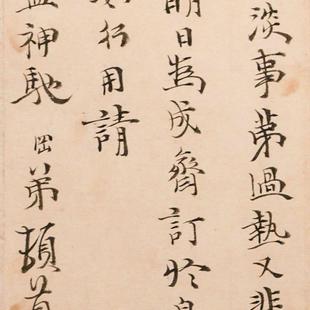 淡事弟過熱又非
明日為成齋訂於
行用請
神馳岡弟頓首